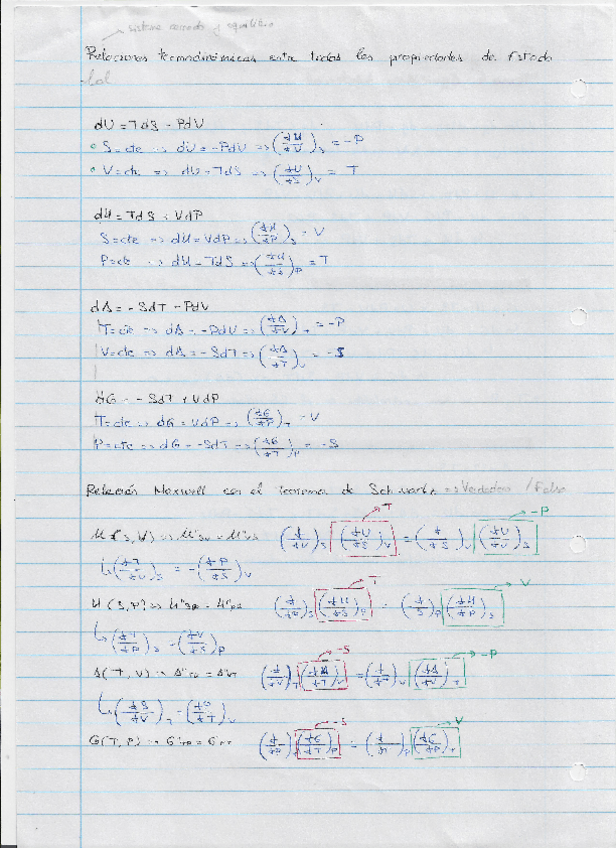 sistema cerrado y equilibrio
Relaciones termodinámicas entre todas las propiedades de Estado
dU = TdS - PdV
• S=cte => dU = -PdV => (∂U/∂V)_S = -P
• V=cte => dU = TdS => (∂U/∂S)_V = T
dH = TdS + VdP
S=cte => dH = VdP => (∂H/∂P)_S = V
P=cte => dH = TdS => (∂H/∂S)_P = T
dA = -SdT - PdV
T=cte => dA = -PdV => (∂A/∂V)_T = -P
V=cte => dA = -SdT => (∂A/∂T)_V = -S
dG = -SdT + VdP
T=cte => dG = VdP => (∂G/∂P)_T = V
P=cte => dG = -SdT => (∂G/∂T)_P = -S
Relación Maxwell con el teorema de Schwartz => Verdadero / Falso
T -P
U(S,V) => U''SV = U''VS (∂/∂V)_S (∂U/∂S)_V = (∂/∂S)_V (∂U/∂V)_S
(∂T/∂V)_S = -(∂P/∂S)_V
T V
H(S,P) => H''SP = H''PS (∂/∂P)_S (∂H/∂S)_P = (∂/∂S)_P (∂H/∂P)_S
(∂T/∂P)_S = (∂V/∂S)_P
-S -P
A(T,V) => A''TV = A''VT (∂/∂V)_T (∂A/∂T)_V = (∂/∂T)_V (∂A/∂V)_T
(∂S/∂V)_T = (∂P/∂T)_V
-S V
G(T,P) => G''TP = G''PT (∂/∂P)_T (∂G/∂T)_P = (∂/∂T)_P (∂G/∂P)_T